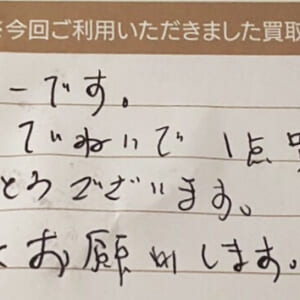 今回ご利用いただきました買取
ーです。
ていねいで 1点
とうございます。
お願いします。